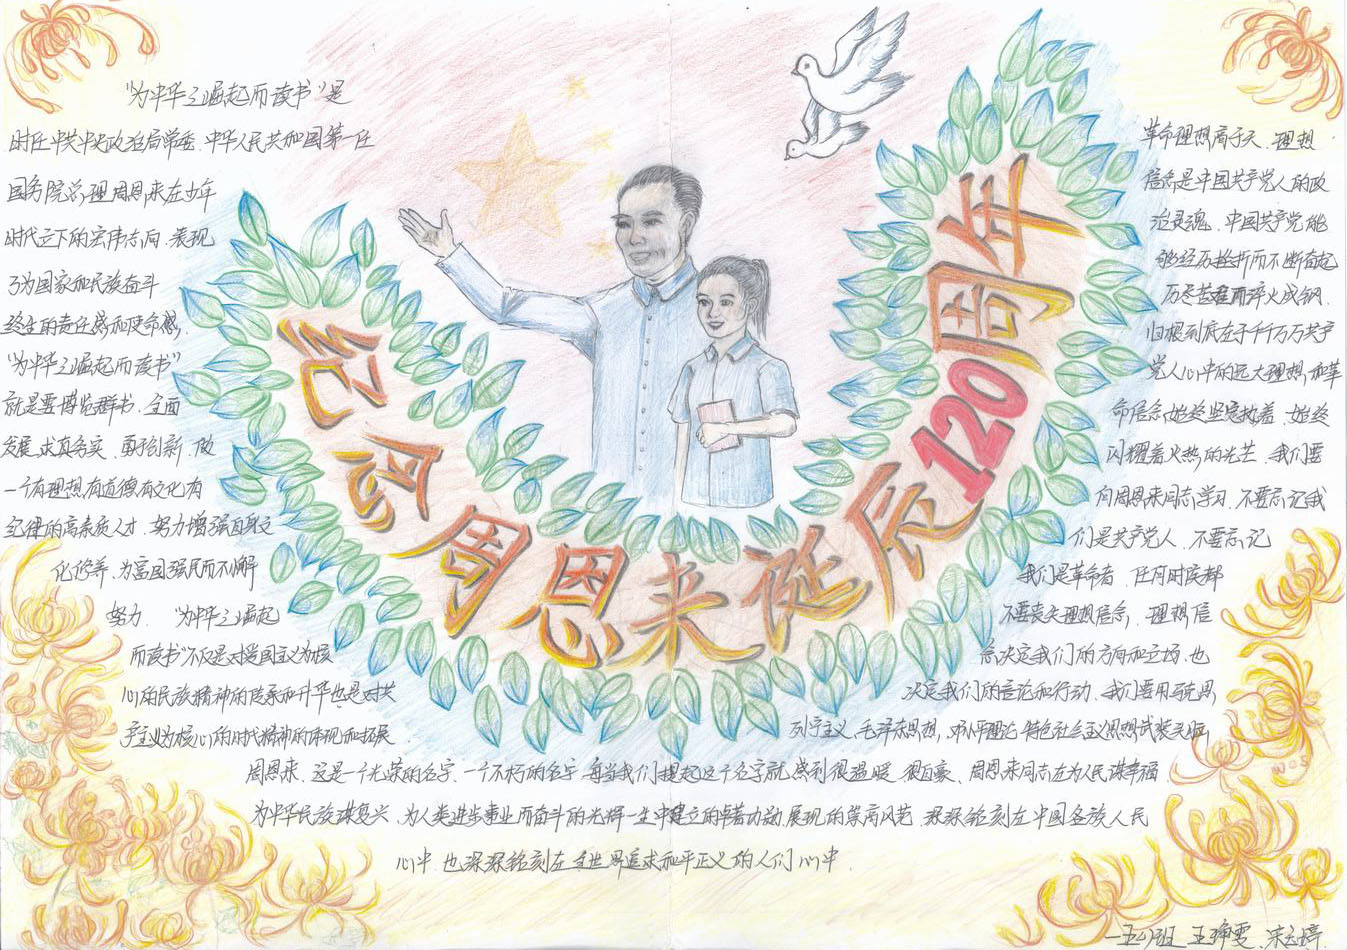 纪念周恩来诞辰120周年
"为中华之崛起而读书"是
时任中共中央政治局常委、中华人民共和国第一任
国务院总理周恩来在少年
时代立下的宏伟志向，表现
了为国家和民族奋斗
终生的责任感和使命感，
"为中华之崛起而读书"
就是要博览群书、全面
发展、求真务实、勇于创新，做
一个有理想有道德有文化有
纪律的高素质人才，努力增强自身文
化修养，为富国强民而不懈
努力．"为中华之崛起
而读书"不仅是对爱国主义为核
心的民族精神的传承和升华也是对共
产主义为核心的时代精神的体现和拓展
革命理想高于天，理想
信念是中国共产党人的政
治灵魂，中国共产党能
够经历挫折而不断奋起
历尽苦难而淬火成钢，
归根到底在于千千万万共产
党人心中的远大理想和革
命信念始终坚定执着，始终
闪耀着火热的光芒，我们要
向周恩来同志学习，不要忘记我
们是共产党人，不要忘记
我们是革命者，任何时候都
不要丧失理想信念，理想信
念决定我们的方向和立场，也
决定我们的言论和行动，我们要用马克思
列宁主义，毛泽东思想，邓小平理论特色社会主义思想武装头脑
周恩来，这是一个光荣的名字、一个不朽的名字．每当我们提起这个名字就感到很温暖、很自豪、周恩来同志在为人民谋幸福
为中华民族谋复兴，为人类进步事业而奋斗的光辉一生中建立的卓著功勋展现的崇高风范，深深铭刻在中国各族人民
心中，也深深铭刻在全世界追求和平正义的人们心中．